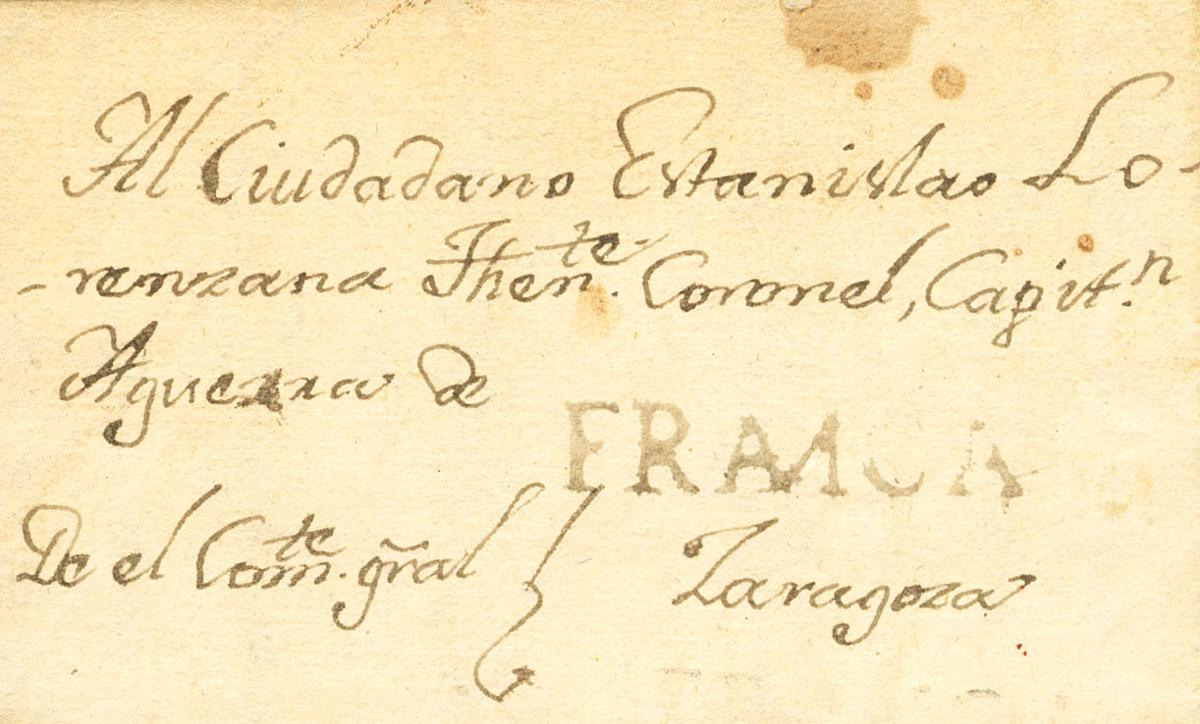 Al Ciudadano Estanislao Lo-
-renzana Thente. Coronel, Capitn.
Aguerra de
FRANCA
De el Comte. gral
Zaragoza